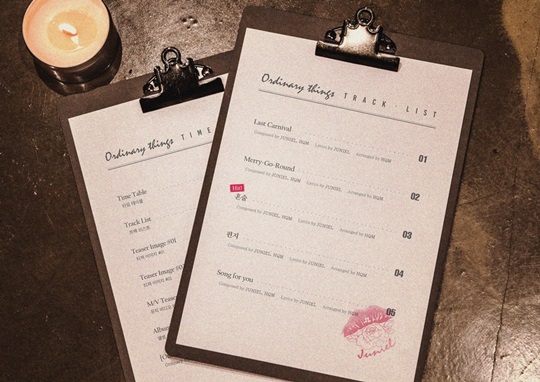 Ordinary things TRACK-LIST
Last Carnival
Composed by JUNIEL, H&M Lyrics by JUNIEL Arranged by H&M 01
Merry-Go-Round
Composed by JUNIEL, H&M Lyrics by JUNIEL Arranged by H&M 02
Hit!
혼술
Composed by JUNIEL, H&M Lyrics by JUNIEL Arranged by H&M 03
편지
Composed by JUNIEL, H&M Lyrics by JUNIEL Arranged by H&M 04
Song for you
Composed by JUNIEL, H&M Lyrics by JUNIEL Arranged by H&M 05
Juniel
Ordinary things TIME
Time Table
타임 테이블
Track List
트랙 리스트
Teaser Image #01
티저 이미지 #01
Teaser Image #0
티저 이미지
M/V Tease
Album